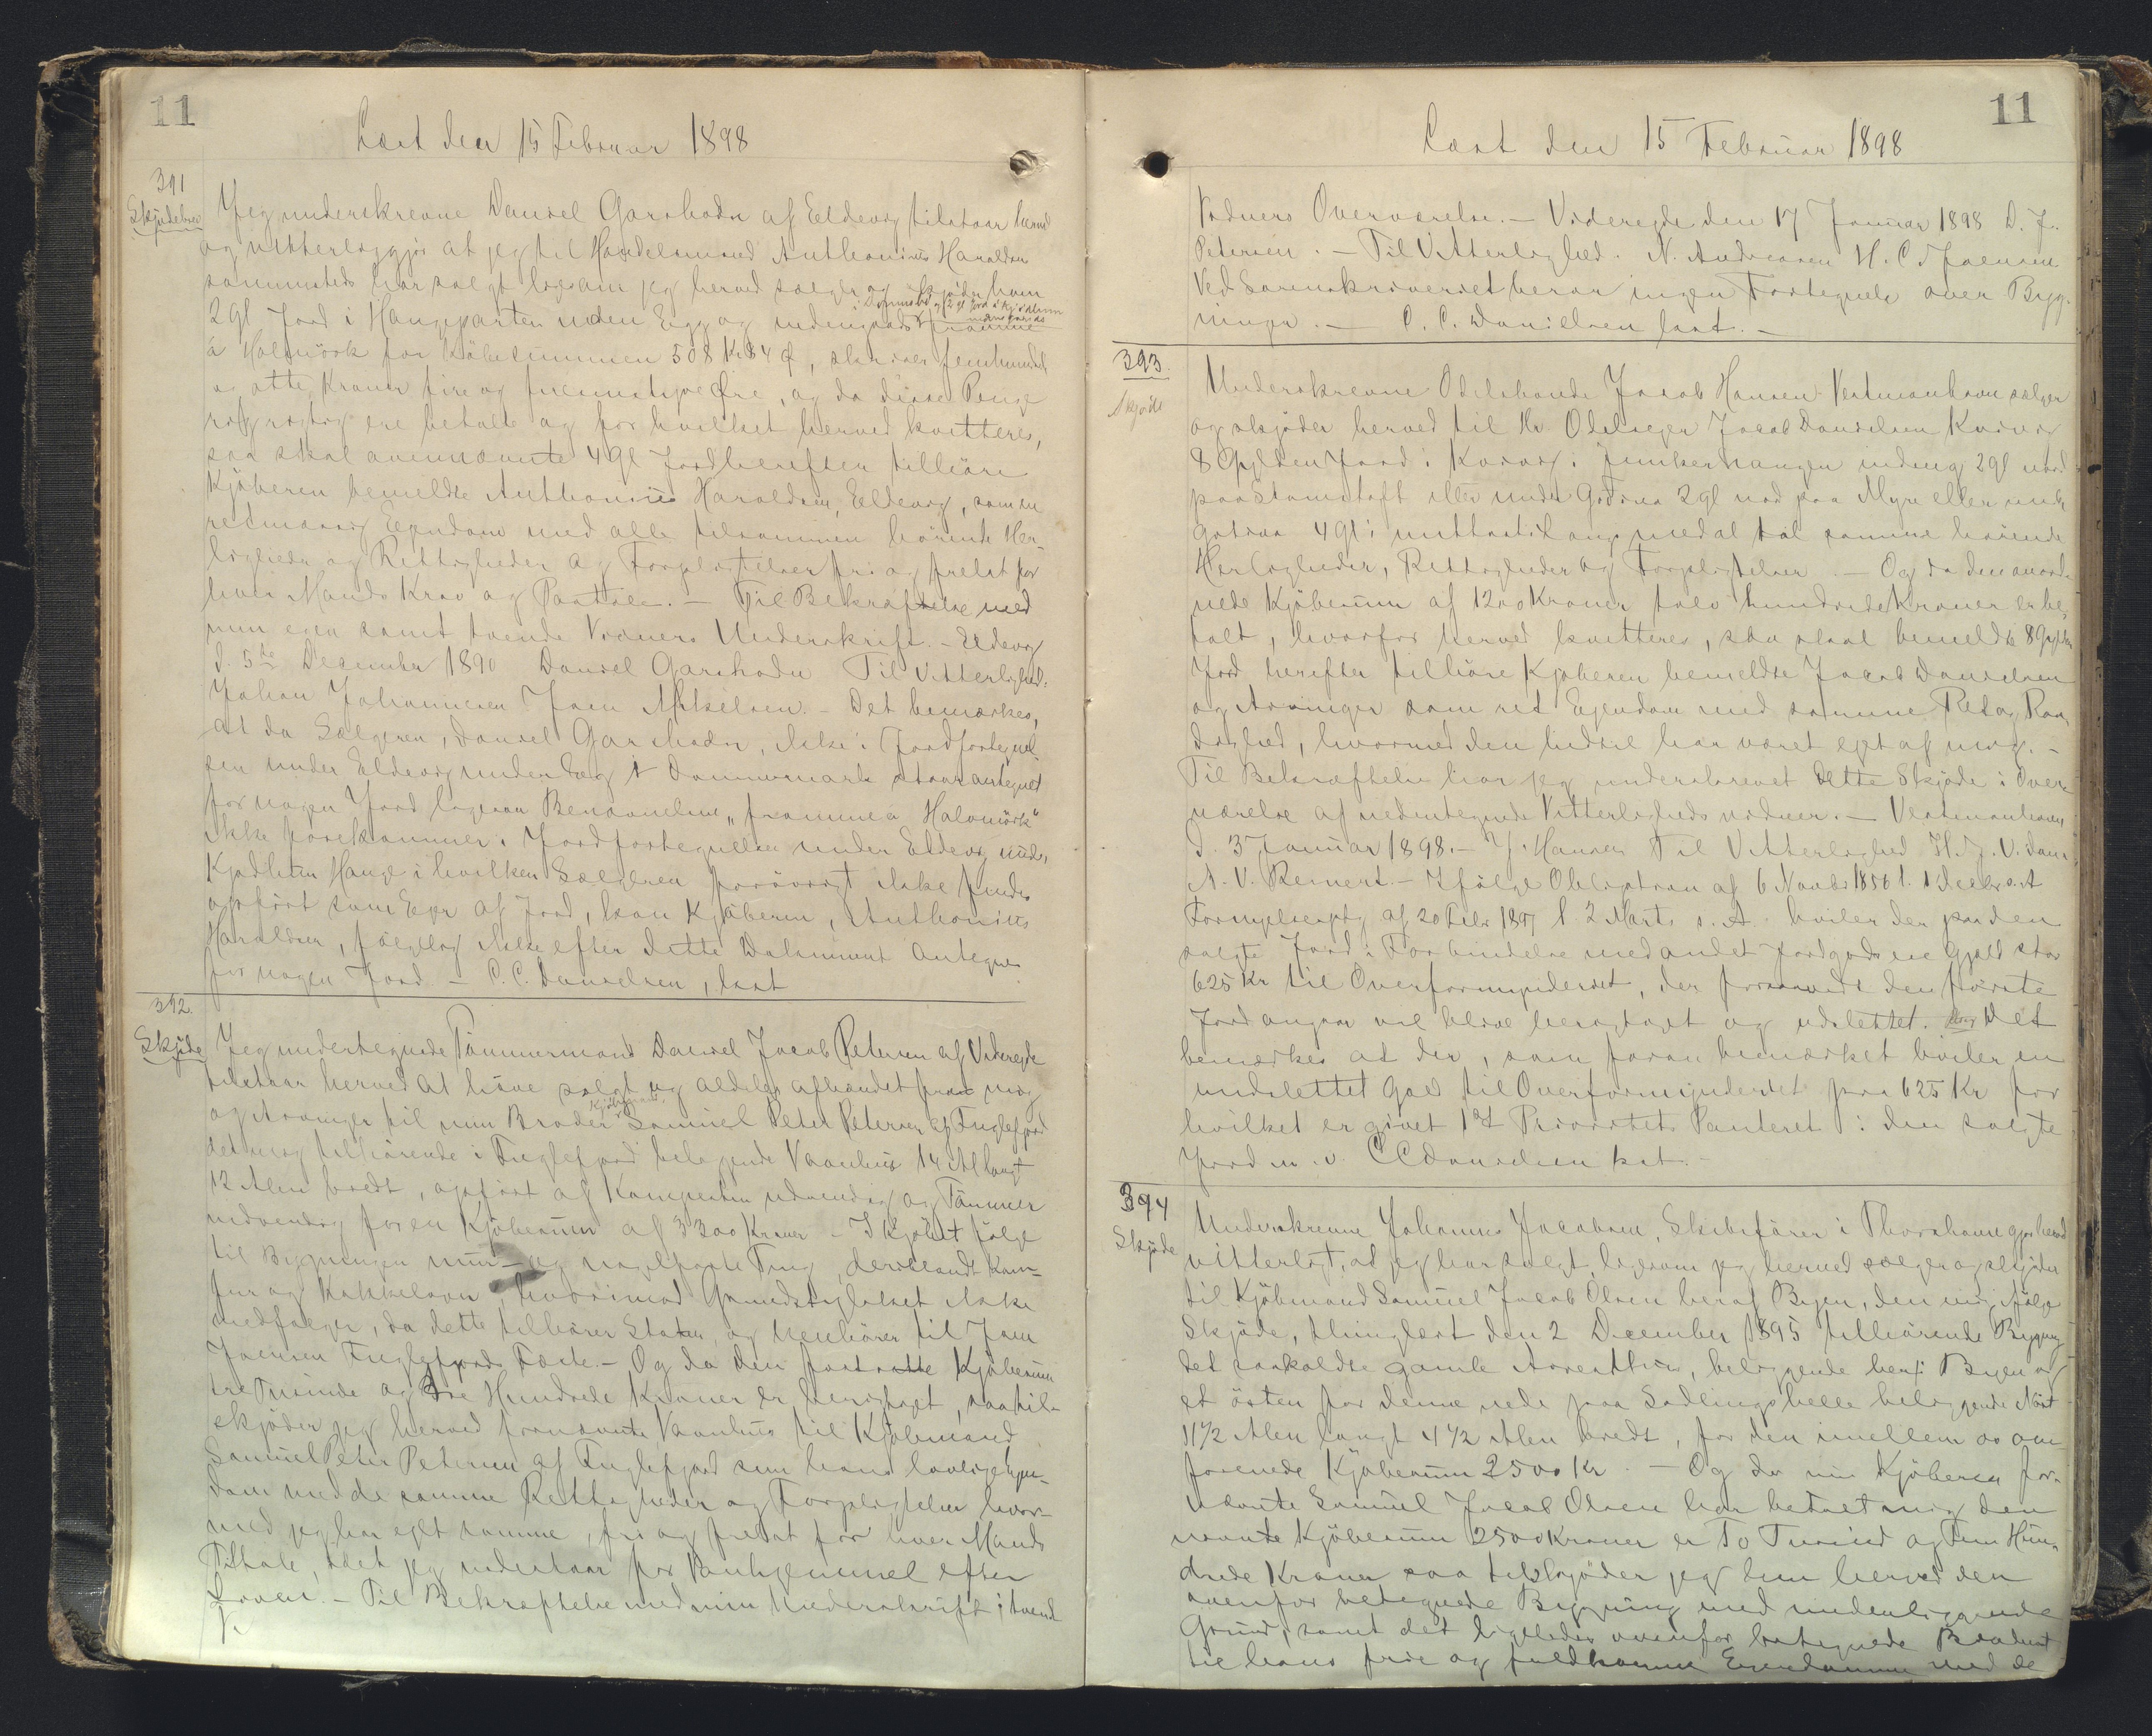 11
Læst den 15 Februar 1898
391
Skjödebrev
Jeg underskrevne Daniel Garshodn af Eldevig tilstaar herved
og vitterliggjör at jeg til Handelsmand Anthonius Haraldsen
sammesteds har solgt ligesom jeg herved sælger og skjöder ham
2 gl Jord i Haugeparten uden Eng og indengaards
á Halvnörk for Köbesummen 508 Kr 84 Ø, skriver femhundrede
og otte Kroner fire og firsindstyve Øre, og da disse Penge
rigtig ere betalte og for hvilket herved kvitteres,
saa skal ovennævnte 4 gl Jord herefter tilhöre
Kjöberen bemeldte Anthonius Haraldsen, Eldevig, som en
retmæssig Eiendom med alle tilsammen hörende Her-
ligheder og Rettigheder og Forpligtelser fri og frelst for
hver Mands Krav og Paatale. – Til Bekræftelse med
min egen samt tvende Vidners Underskrift. – Eldevig
d. 5te December 1890 Daniel Garshodn Til Vitterlighed:
Johan Johannesen Joen Mikkelsen. – Det bemærkes,
at da Sælgeren, Daniel Garshodn, ikke i Jordfortegnel-
sen under Eldevig under Eng & Dammemark staar antegnet
for nogen Jord ligesom Benævnelsen „framme á Halvnörk"
ikke forekommer i Jordfortegnelsen under Eldevig under
Kjodleten Hauge i hvilken Sælgeren forövrigt ikke findes
opfört som Eier af Jord, kan Kjöberen, Anthonius
Haraldsen, fölgelig ikke efter dette Dokument antegnes
for nogen Jord. – C. C. Danielsen, kst
392.
Skjöde
Jeg undertegnede Tömmermand Daniel Jacob Petersen af Videreide
tilstaar herved at have solgt og aldeles afhændet fra mig
og Arvinger til min Broder Kjöbmand Samuel Peter Petersen af Fuglefjord
det mig tilhörende i Fuglefjord beliggende Vaanhus 14 Al langt
12 Alen bredt, opfört af Kampesten udvendig og Tömmer
indvendig for en Kjöbesum af 3300 Kroner – I Kjöbet fölge
til Bygningen mur- og nagelfaste Ting, deriblandt Kom-
fur og Kakkelovn, hvorimod Grundstykket ikke
medfölger, da dette tilhörer Staten, og henhörer til Joen
Joensen Fuglefjords Fæste. – Og da den fastsatte Kjöbesum
tre Tusinde og tre Hundrede Kroner er berigtiget, saa til-
skjöder jeg herved fornævnte Vaanhus til Kjöbmand
Samuel Peter Petersen af Fuglefjord som hans lovlige Ejen-
dom med de samme Rettigheder og Forpligtelser hvor-
med jeg har ejet samme, fri og frelst for hver Mands
Tiltale, idet jeg indestaar for Vanhjemmel efter
Loven. – Til Bekræftelse med min Underskrift i tvende
11
Læst den 15 Februar 1898
Vidners Overværelse. – Videreide den 17 Januar 1898 D. J.
Petersen. – Til Vitterlighed. N. Andreasen H. C. Joensen
Ved Sorenskriveriet beror ingen Fortegnelse over Byg-
ninger. – C. C. Danielsen kst. –
393.
Skjöde
Underskrevne Odelsbonde Jacob Hansen Vestmanhavn sælger
og skjöder herved til Hr Odelseier Jacob Danielsen Kvivig
8 Gylden Jord i Kvivig i Junkerhaugen indmg 2 gl nord
paa Stamstoft eller under Gotuna 2 gl nord paa Myre eller under
Gotuna 4 gl i med al til samme hörende
Herligheder, Rettigheder og Forpligtelser. – Og da den accord-
erede Kjöbesum af 1200 Kroner tolv hundrede Kroner er be-
talt, hvorfor herved kvitteres, saa skal bemeldte 8 Gylden
Jord herefter tilhöre Kjöberen bemeldte Jacob Danielsen
og Arvinger som ret Ejendom med samme Ret og Raa-
dighed, hvormed den hidtil har været ejet af mig. –
Til Bekræftelse har jeg underskrevet dette Skjöde i Over-
værelse af nedentegnede Vitterlighedsvidner. – Vestmanhavn
d. 3 Januar 1898. – J. Hansen Til Vitterlighed
N. V. Reinert. – Ifölge Obligation af 6 Novbr 1856 l. 1 Decbr s. A
af 20 Febr 1897 l 2 Marts s. A. hviler der paa den
solgte Jord i Forbindelse med andet Jordgods en Gjæld stor
625 Kr til Overformynderiet, der forsaavidt den förste
Jord angaar vel blive berigtiget og udslettet. Det
bemærkes at der, som foran bemærket hviler en
uudslettet Gæld til Overformynderiet paa 625 Kr for
hvilket er givet 1st Prioritets Panteret i den solgte
Jord m. v. C C Danielsen kst. –
394
Skjöde
Underskrevne Johannes Jacobsen, Skibsförer i Thorshavn gjör herved
vitterligt, at jeg har solgt, ligesom jeg herved sælger og skjöder
til Kjöbmand Samuel Jacob Olsen her af Byen, den mig ifölge
Skjöde, thinglæst den 2 December 1895 tilhörende Bygning
det saakaldte gamle Aresthus, beliggende her i Byen og
et östen for denne nede paa Sadlingshelle beliggende Nöst
11½ Alen langt 4½ Alen bredt, for den imellem os om-
forenede Kjöbesum 2500 Kr. – Og da nu Kjöberen for-
nævnte Samuel Jacob Olsen har betalt mig den
nævnte Kjöbesum 2500 Kroner er To Tusind og Fem Hun-
drede Kroner saa tilskjöder jeg ham herved den
ovenfor betegnede Bygning med underliggende
Grund, samt det ligeledes ovenfor betegnede Baadnöst
til hans frie og fuldkomne Eiendomme med de